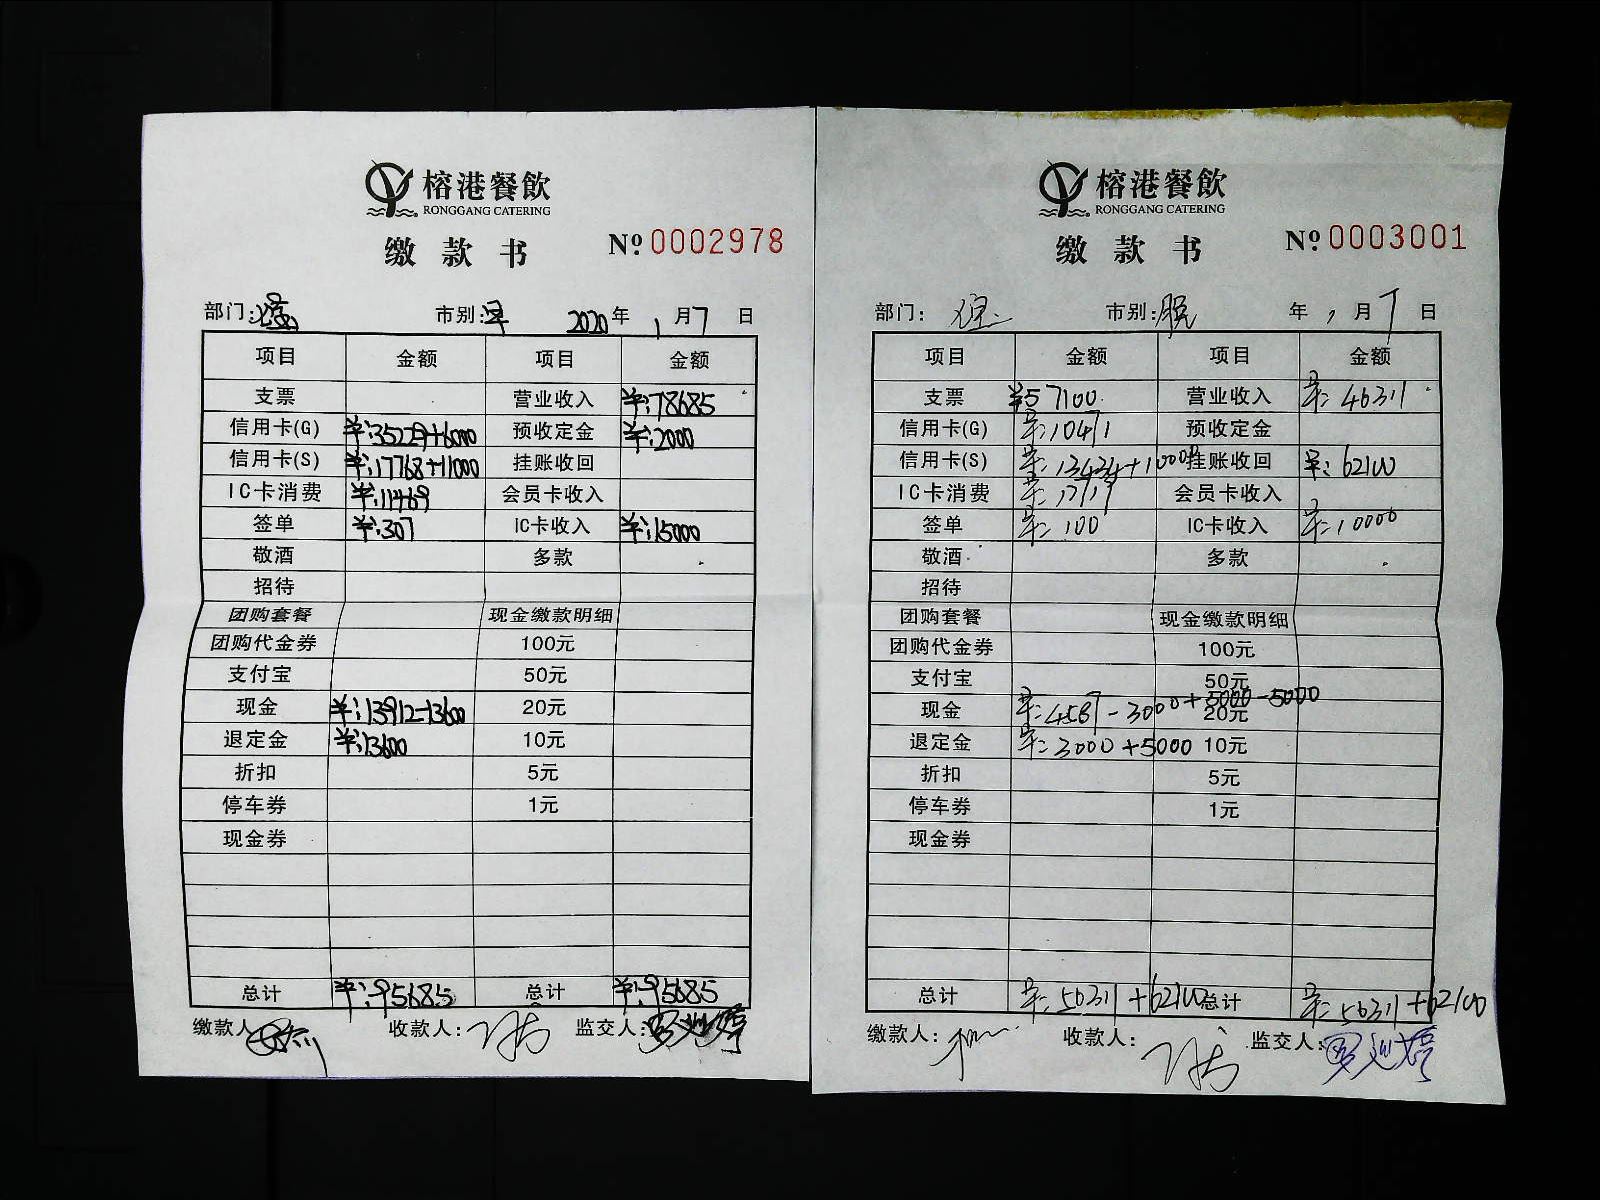 榕港餐飲
RONGGANG CATERING
缴款书 Nº 0002978
部门: 市别:早 2020年1月7日
项目 金额 项目 金额
支票 营业收入 ¥:78685
信用卡(G) ¥:35229+6000 预收定金 ¥:2000
信用卡(S) ¥:17768+11000 挂账收回
IC卡消费 ¥:11469 会员卡收入
签单 ¥:307 IC卡收入 ¥:15000
敬酒 多款
招待
团购套餐 现金缴款明细
团购代金券 100元
支付宝 50元
现金 ¥:13912-13600 20元
退定金 ¥:13600 10元
折扣 5元
停车券 1元
现金券
总计 ¥:95685 总计 ¥:95685
缴款人: 收款人: 监交人:
榕港餐飲
RONGGANG CATERING
缴款书 Nº 0003001
部门: 市别: 年1月7日
项目 金额 项目 金额
支票 ¥57100 营业收入 ¥:46311
信用卡(G) ¥:10471 预收定金
信用卡(S) ¥:13434+10000 挂账收回 ¥:62100
IC卡消费 会员卡收入
签单 ¥:100 IC卡收入 ¥:10000
敬酒 多款
招待
团购套餐 现金缴款明细
团购代金券 100元
支付宝 50元
现金 ¥:4587-3000+5000-5000 20元
退定金 ¥:3000+5000 10元
折扣 5元
停车券 1元
现金券
总计 ¥:56311+62100 总计 ¥:56311+62100
缴款人: 收款人: 监交人: